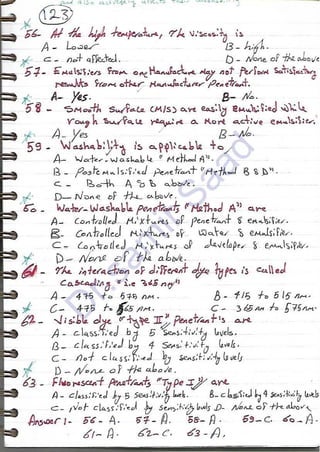 (123)
56- At the high temperature, The viscosity is
A- Lower B- high.
C- not affected. D- None of the above
57- Emulsifiers From one Manufacture May not Perform Satisfactory
results From other Manufacturer Penetrant.
A- Yes. B- No.
58- Smooth Surface (M/SS) are easily Emulsified While
rough Surface require a More active emulsifier.
A- Yes B- No.
59- Washability is applicable to
A- Water-Washable "Method A".
B- Post emulsified penetrant "Method B & D".
C- Both A & B above.
D- None of the above.
60- Water-Washable Penetrants "Method A" are
A- Controlled Mixtures of penetrant & emulsifier.
B- Controlled Mixtures of water & emulsifier.
C- Controlled Mixtures of developer & emulsifier.
D- None of the above.
61- The interaction of different dye types is called
Cascading "i.e 365 nm"
A- 475 to 575 nm. B- 415 to 515 nm.
C- 475 to 565 nm. C- 365 nm to 575 nm.
62- Visible dye "type II" Penetrant's are
A- Classified by 5 Sensitivity levels.
B- Classified by 4 Sensitivity levels.
C- not classified by Sensitivity levels
D- None of the above.
63- Fluorescent Penetrants "Type I" are
A- Classified by 5 sensitivity levels. B- classified by 4 sensitivity levels
C- Not classified by sensitivity levels D- None of the above
Answer 1- 56- A. 57- A. 58- A. 59- C. 60- A.
61- A. 62- C. 63- A.